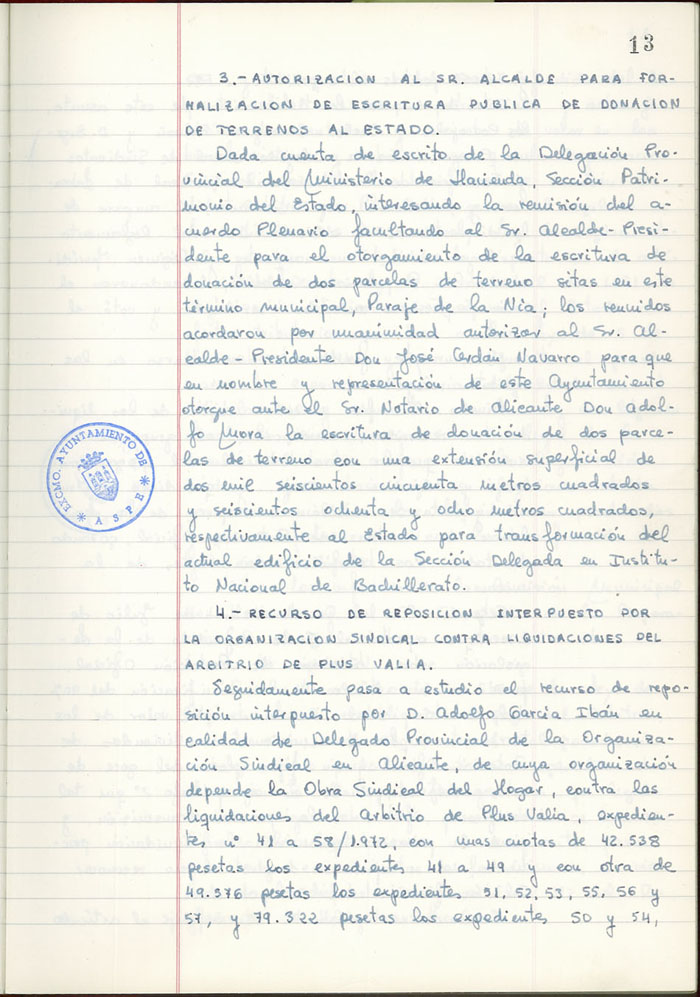 13
3.- AUTORIZACION AL SR. ALCALDE PARA FOR-
MALIZACION DE ESCRITURA PUBLICA DE DONACION
DE TERRENOS AL ESTADO.
Dada cuenta de escrito de la Delegación Pro-
vincial del Ministerio de Hacienda, Sección Patri-
monio del Estado, interesando la remisión del a-
cuerdo Plenario facultando al Sr. Alcalde-Presi-
dente para el otorgamiento de la escritura de
donación de dos parcelas de terreno sitas en este
término municipal, Paraje de la Nía; los reunidos
acordaron por unanimidad autorizar al Sr. Al-
calde-Presidente Don José Cerdán Navarro para que
en nombre y representación de este Ayuntamiento
otorgue ante el Sr. Notario de Alicante Don Adol-
fo Mora la escritura de donación de dos parce-
las de terreno con una extensión superficial de
dos mil seiscientos cincuenta metros cuadrados
y seiscientos ochenta y ocho metros cuadrados,
respectivamente al Estado para transformación del
actual edificio de la Sección Delegada en Institu-
to Nacional de Bachillerato.
EXCMO. AYUNTAMIENTO DE
* ASPE *
4.- RECURSO DE REPOSICION INTERPUESTO POR
LA ORGANIZACION SINDICAL CONTRA LIQUIDACIONES DEL
ARBITRIO DE PLUS VALIA.
Seguidamente pasa a estudio el recurso de repo-
sición interpuesto por D. Adolfo García Ibán en
calidad de Delegado Provincial de la Organiza-
ción Sindical en Alicante, de cuya organización
depende la Obra Sindical del Hogar, contra las
liquidaciones del Arbitrio de Plus Valia, expedien-
tes nº 41 a 58/1.972, con unas cuotas de 42.538
pesetas los expedientes 41 a 49 y con otra de
49.376 pesetas los expedientes 51, 52, 53, 55, 56 y
57, y 79.322 pesetas los expedientes 50 y 54,